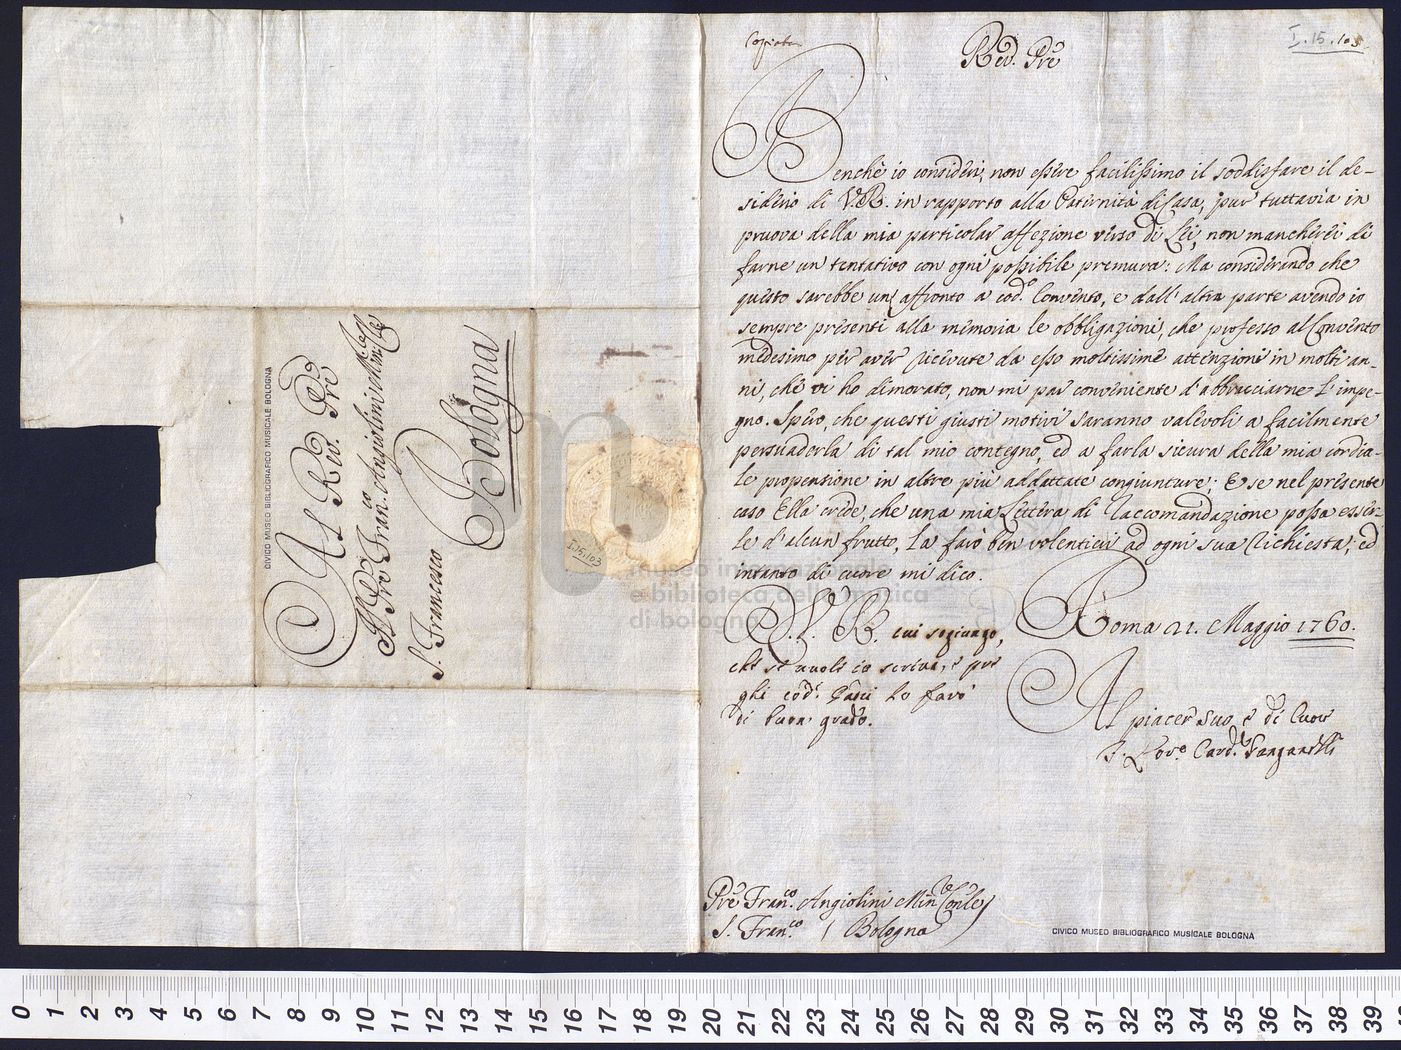 Copiata
I.15.103
Rev. Prẽ
Benchè io consideri, non essere facilissimo il soddisfare il de-
siderio di V.R. in rapporto alla Paternità di Casa, pur tuttavia in
pruova della mia particolar affezione verso di Lei, non mancherei di
farne un tentativo con ogni possibile premura: Ma considerando che
questo sarebbe un affronto a cod.º Convento, e dall'altra parte avendo io
sempre presenti alla memoria le obbligazioni, che professo al Convento
medesimo per aver ricevute da esso moltissime attenzioni in molti an-
ni, che vi ho dimorato, non mi par conveniente d'abbracciarne l'impe-
gno. Spero, che questi giusti motivi saranno valevoli a facilmente
persuaderla di tal mio contegno, ed a farla sicura della mia cordia-
le propensione in altre più addattate congiunture; E se nel presente
caso Ella crede, che una mia Lettera di raccomandazione possa esser-
le d'alcun frutto, la farò ben volentieri ad ogni sua richiesta; ed
intanto di cuore mi dico.
S. V. R. cui sogiungo,
che se vuole io scriva, e pre
ghi cod.i la farò
di buon grado.
Roma 21. Maggio 1760.
Al piacer suo e di Cuore
F. Lor.º Card.le Ganganelli
Prẽ Fran.co Angiolini Min.re Conle
S. Fran.co / Bologna
CIVICO MUSEO BIBLIOGRAFICO MUSICALE BOLOGNA
CIVICO MUSEO BIBLIOGRAFICO MUSICALE BOLOGNA
Al Rev. Pre
Il Prẽ Fran.co Angiolini Min.
S. Francesco
Bologna
I.15.103
museo internazionale
e biblioteca della musica
di bologna
0 1 2 3 4 5 6 7 8 9 10 11 12 13 14 15 16 17 18 19 20 21 22 23 24 25 26 27 28 29 30 31 32 33 34 35 36 37 38 39